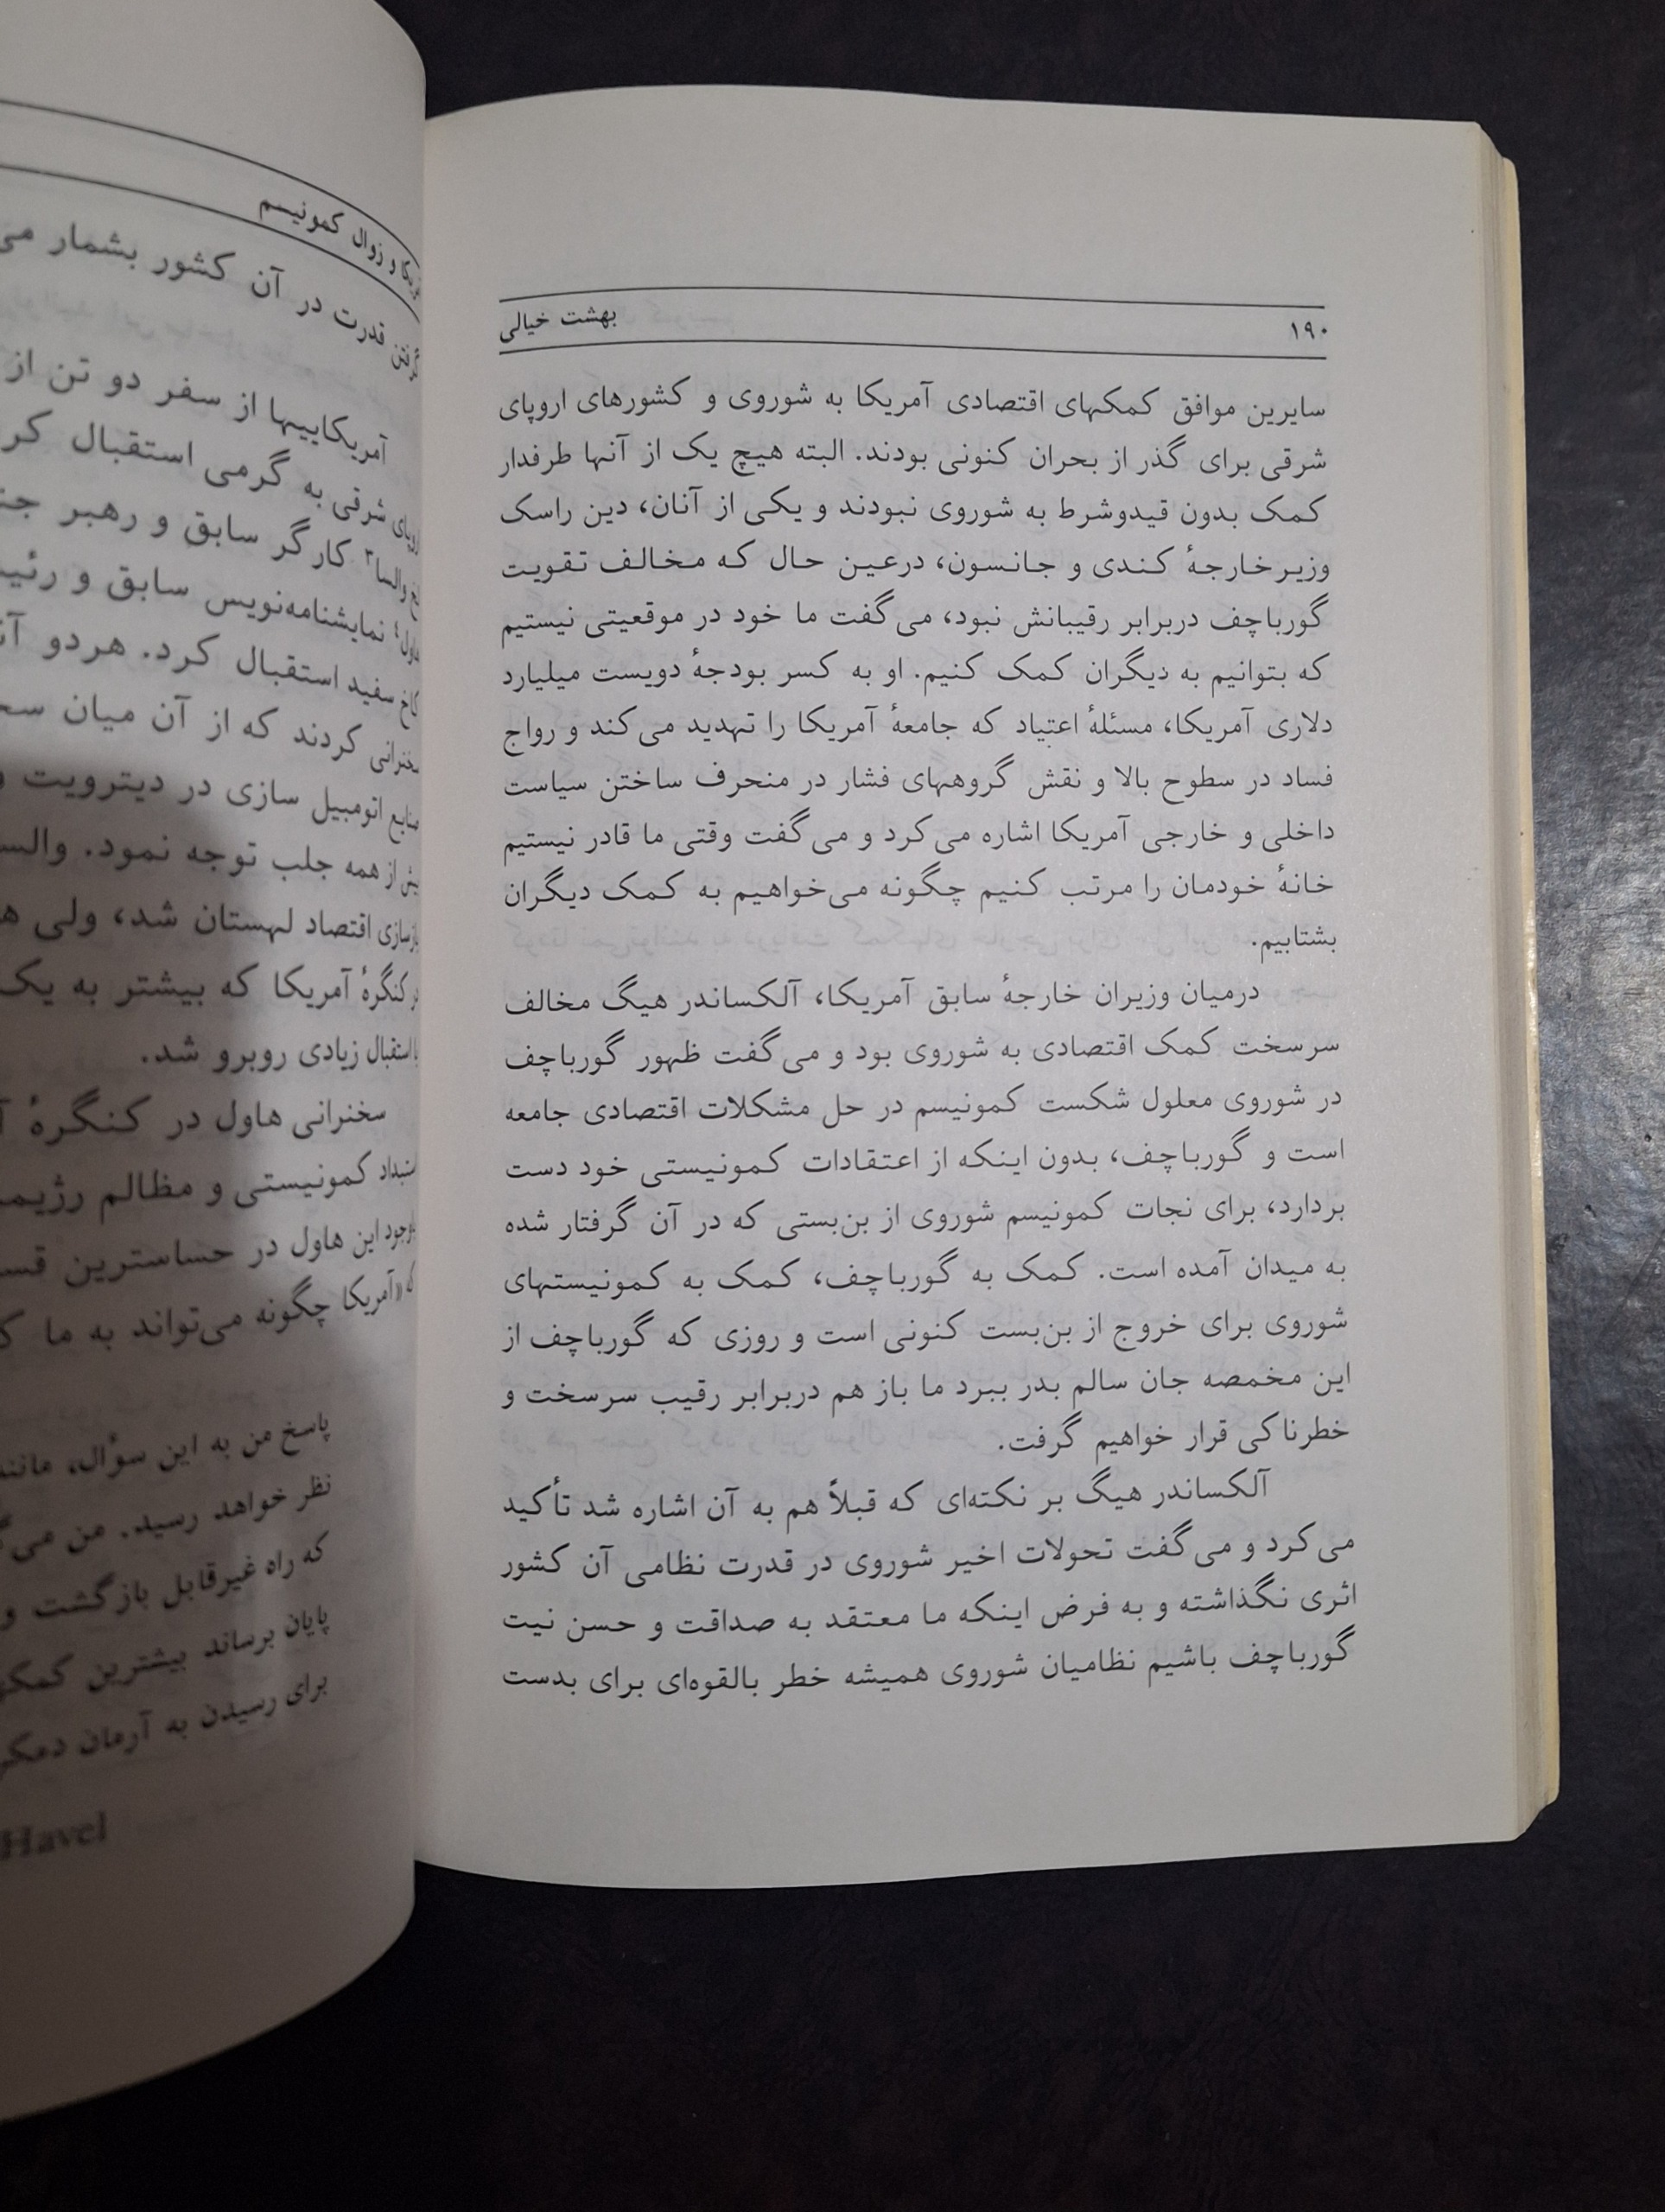 ۱۹۰
بهشت خیالی
سایرین موافق کمکهای اقتصادی آمریکا به شوروی و کشورهای اروپای
شرقی برای گذر از بحران کنونی بودند. البته هیچ یک از آنها طرفدار
کمک بدون قیدوشرط به شوروی نبودند و یکی از آنان، دین راسک
وزیرخارجهٔ کندی و جانسون، درعین حال که مخالف تقویت
گورباچف دربرابر رقیبانش نبود، می‌گفت ما خود در موقعیتی نیستیم
که بتوانیم به دیگران کمک کنیم. او به کسر بودجهٔ دویست میلیارد
دلاری آمریکا، مسئلهٔ اعتیاد که جامعهٔ آمریکا را تهدید می‌کند و رواج
فساد در سطوح بالا و نقش گروههای فشار در منحرف ساختن سیاست
داخلی و خارجی آمریکا اشاره می‌کرد و می‌گفت وقتی ما قادر نیستیم
خانهٔ خودمان را مرتب کنیم چگونه می‌خواهیم به کمک دیگران
بشتابیم.
درمیان وزیران خارجهٔ سابق آمریکا، آلکساندر هیگ مخالف
سرسخت کمک اقتصادی به شوروی بود و می‌گفت ظهور گورباچف
در شوروی معلول شکست کمونیسم در حل مشکلات اقتصادی جامعه
است و گورباچف، بدون اینکه از اعتقادات کمونیستی خود دست
بردارد، برای نجات کمونیسم شوروی از بن‌بستی که در آن گرفتار شده
به میدان آمده است. کمک به گورباچف، کمک به کمونیستهای
شوروی برای خروج از بن‌بست کنونی است و روزی که گورباچف از
این مخمصه جان سالم بدر ببرد ما باز هم دربرابر رقیب سرسخت و
خطرناکی قرار خواهیم گرفت.
آلکساندر هیگ بر نکته‌ای که قبلاً هم به آن اشاره شد تأکید
می‌کرد و می‌گفت تحولات اخیر شوروی در قدرت نظامی آن کشور
اثری نگذاشته و به فرض اینکه ما معتقد به صداقت و حسن نیت
گورباچف باشیم نظامیان شوروی همیشه خطر بالقوه‌ای برای بدست
و زوال کمونیسم
قدرت در آن کشور بشمار
آمریکاییها از سفر دو تن از
شرقی به گرمی استقبال
والسا۳ کارگر سابق و رهبر
نمایشنامه‌نویس سابق و
کاخ سفید استقبال کرد. هردو
سخنرانی کردند که از آن میان
صنایع اتومبیل سازی در دیترویت
بیش از همه جلب توجه نمود.
بازسازی اقتصاد لهستان شد، ولی
در کنگرهٔ آمریکا که بیشتر به یک
با استقبال زیادی روبرو شد.
سخنرانی هاول در کنگرهٔ
استبداد کمونیستی و مظالم
باوجود این هاول در حساسترین
که «آمریکا چگونه می‌تواند به ما
پاسخ من به این سؤال، مانند
نظر خواهد رسید. من
که راه غیرقابل بازگشت و
پایان برساند بیشترین
برای رسیدن به آرمان
Havel